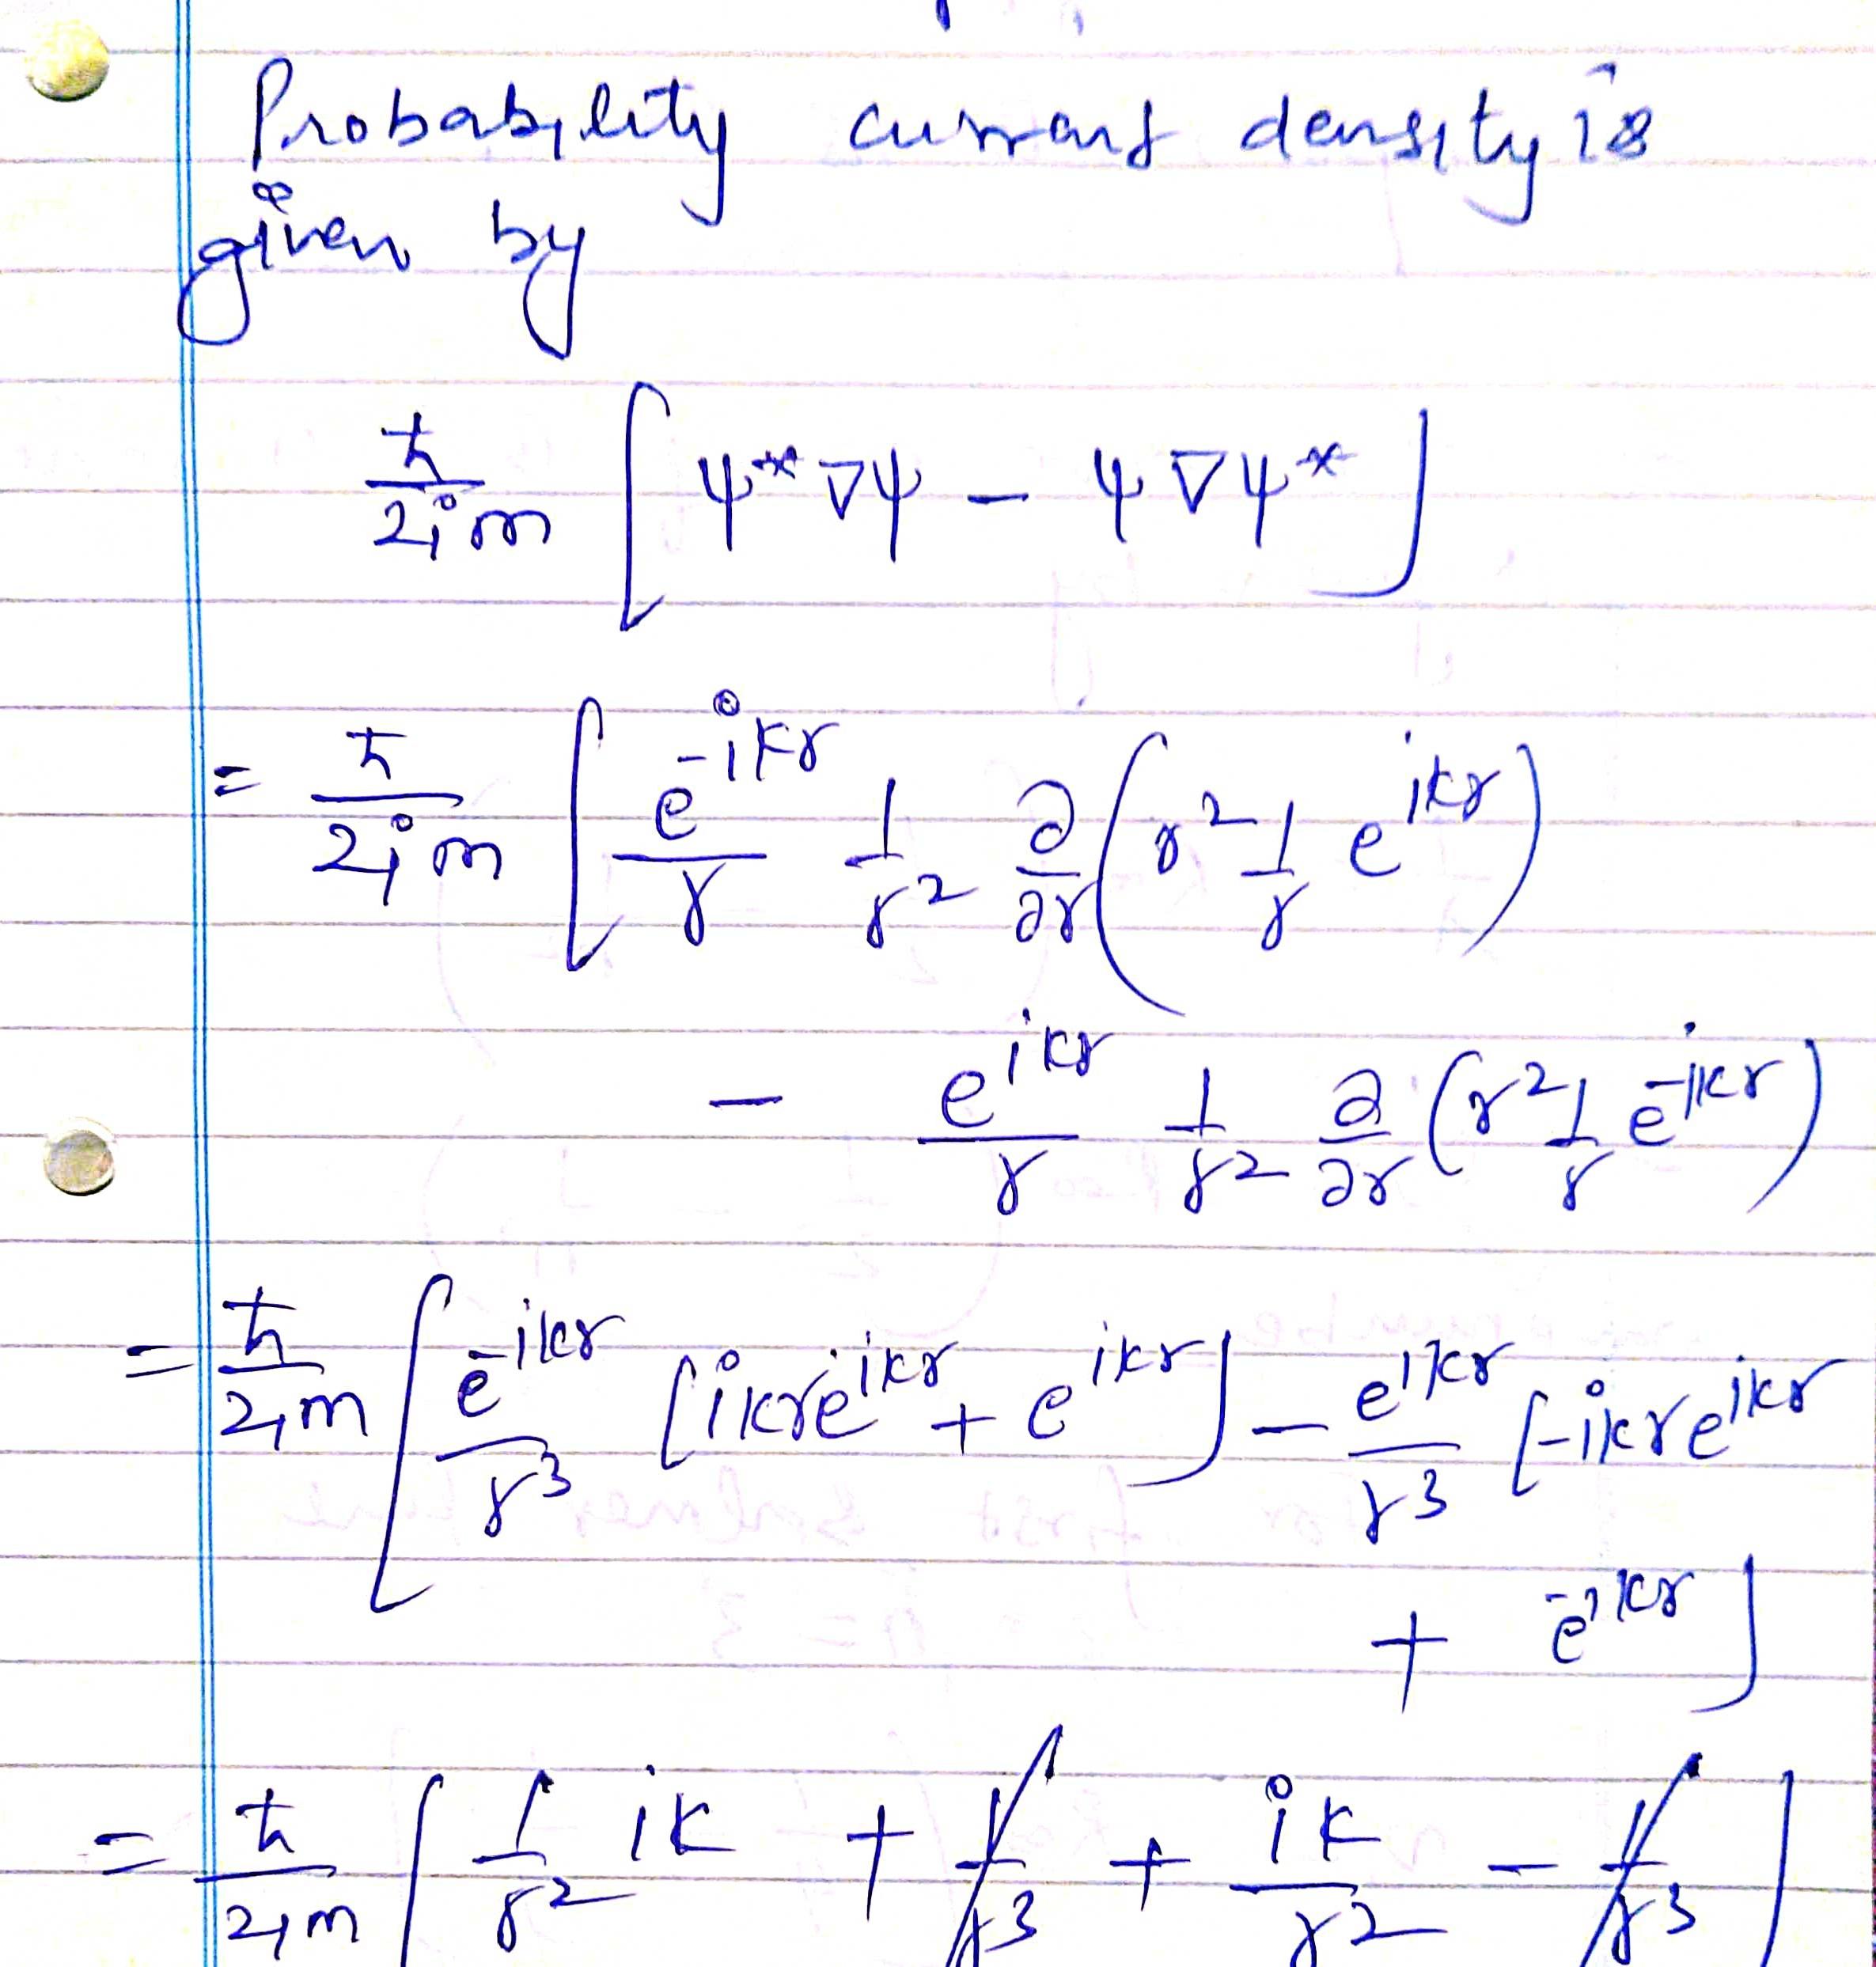 Probability current density is
given by
ħ/2im [ψ*∇ψ - ψ∇ψ*]
= ħ/2im [e^-ikr/r 1/r² ∂/∂r (r² 1/r e^ikr)
- e^ikr/r 1/r² ∂/∂r (r² 1/r e^-ikr)
= ħ/2im [e^-ikr/r³ [ikre^ikr + e^ikr] - e^ikr/r³ [-ikre^ikr
+ e^-ikr]
= ħ/2im [1/r² ik + 1/r³ + ik/r² - 1/r³]